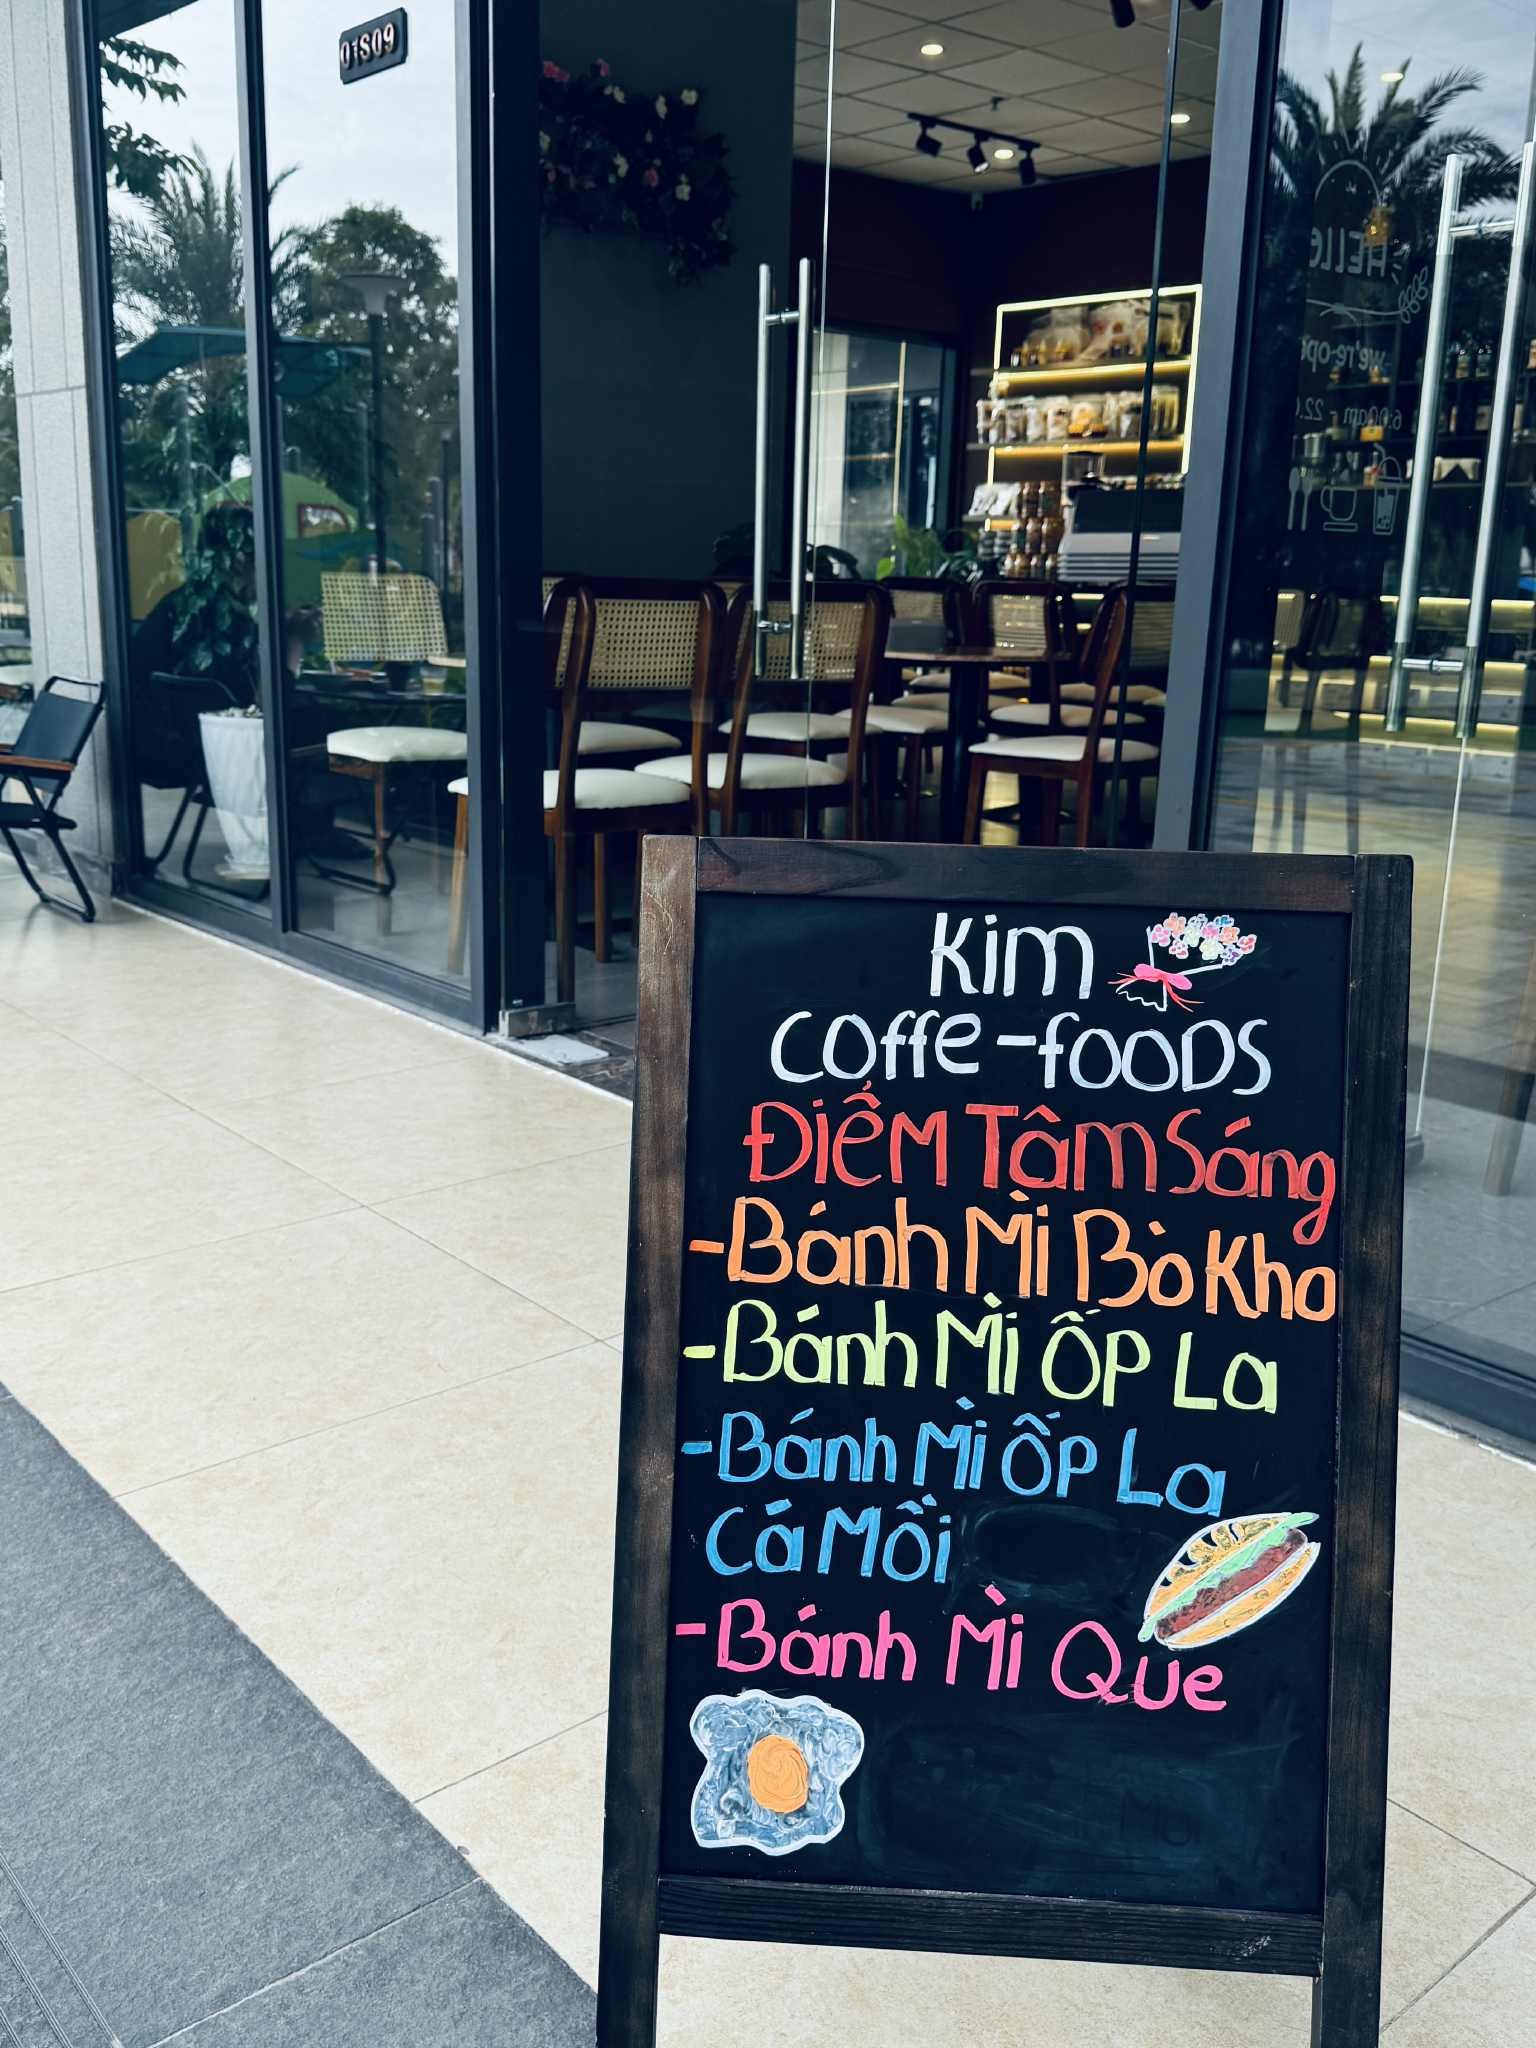 01S09
HELLO
we're ope
6:00am - 22.
Kim
Coffe-fooDS
ĐiỂM TâmSáng
-Bánh Mì BòKho
-Bánh Mì ỐP La
-Bánh Mì ỐP La
Cá Mồi
-Bánh Mì Que